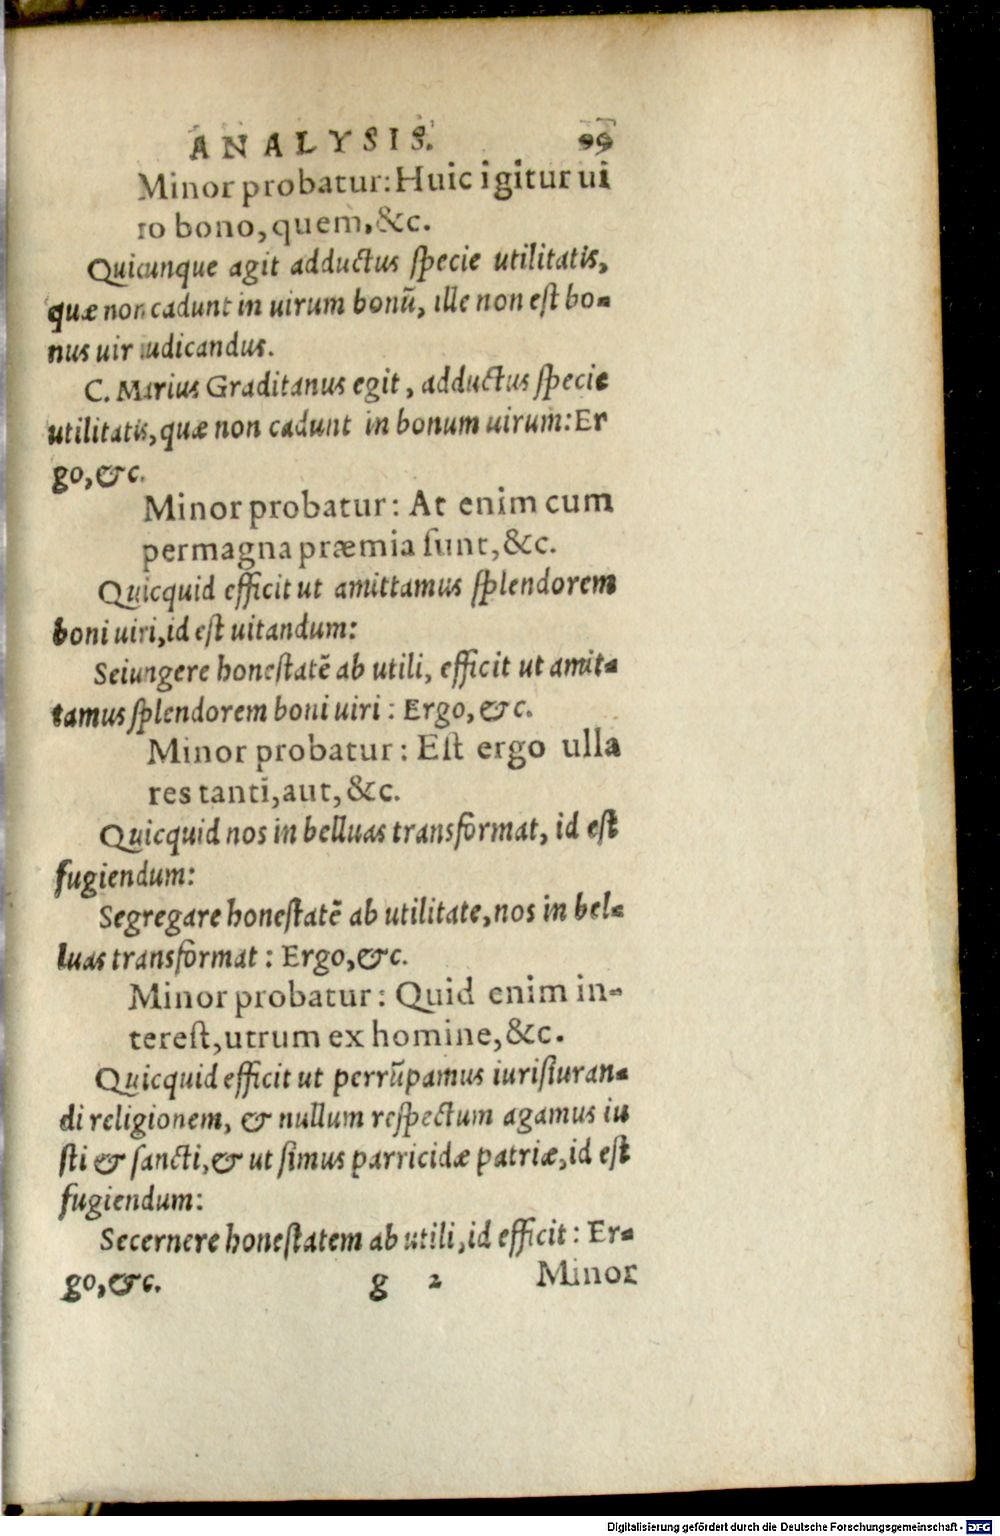 ANALYSIS. 99
Minor probatur: Huic igitur ui
ro bono, quem, &c.
Quicunque agit adductus specie utilitatis,
quæ non cadunt in uirum bonũ, ille non est bo-
nus uir iudicandus.
C. Marius Graditanus egit, adductus specie
utilitatis, quæ non cadunt in bonum uirum: Er
go, &c.
Minor probatur: At enim cum
permagna præmia sunt, &c.
Quicquid efficit ut amittamus splendorem
boni uiri, id est uitandum:
Seiungere honestatẽ ab utili, efficit ut amit-
tamus splendorem boni uiri: Ergo, &c.
Minor probatur: Est ergo ulla
res tanti, aut, &c.
Quicquid nos in belluas transformat, id est
fugiendum:
Segregare honestatẽ ab utilitate, nos in bel-
luas transformat: Ergo, &c.
Minor probatur: Quid enim in-
terest, utrum ex homine, &c.
Quicquid efficit ut perrũpamus iurisiuran-
di religionem, & nullum respectum agamus iu
sti & sancti, & ut simus parricidæ patriæ, id est
fugiendum:
Secernere honestatem ab utili, id efficit: Er-
go, &c. g 2 Minor
Digitalisierung gefördert durch die Deutsche Forschungsgemeinschaft - DFG